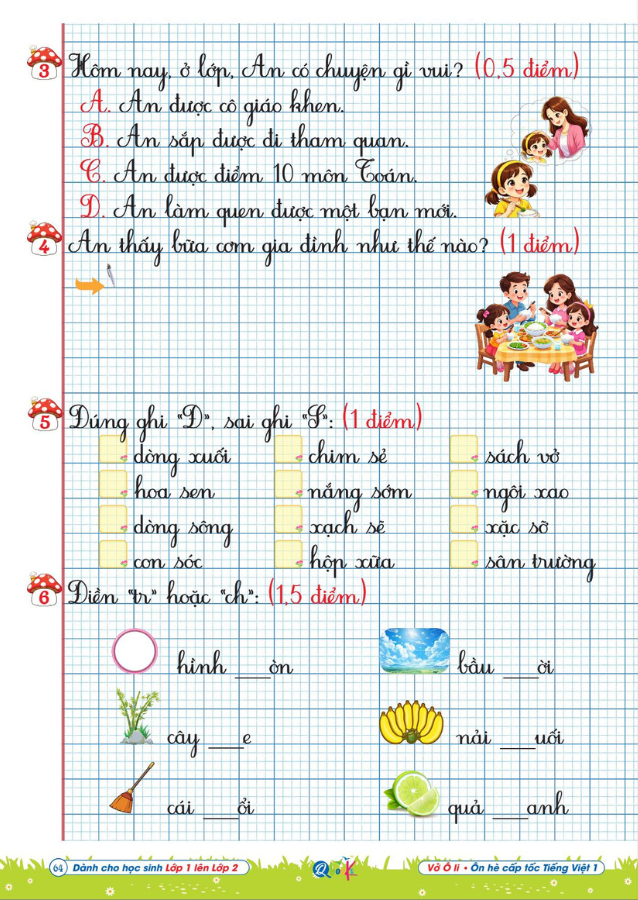 3 Hôm nay, ở lớp, An có chuyện gì vui? (0,5 điểm)
A. An được cô giáo khen.
B. An sắp được đi tham quan.
C. An được điểm 10 môn Toán.
D. An làm quen được một bạn mới.
4 An thấy bữa cơm gia đình như thế nào? (1 điểm)
5 Đúng ghi "Đ", sai ghi "S": (1 điểm)
dòng xuối chim sẻ sách vở
hoa sen nắng sớm ngôi xao
dòng sông xạch sẽ xặc sỡ
con sóc hộp xữa sân trường
6 Điền "tr" hoặc "ch": (1,5 điểm)
hình ___òn bầu ___ời
cây ___e nải ___uối
cái ___ổi quả ___anh
64 Dành cho học sinh Lớp 1 lên Lớp 2 Vở Ô li • Ôn hè cấp tốc Tiếng Việt 1